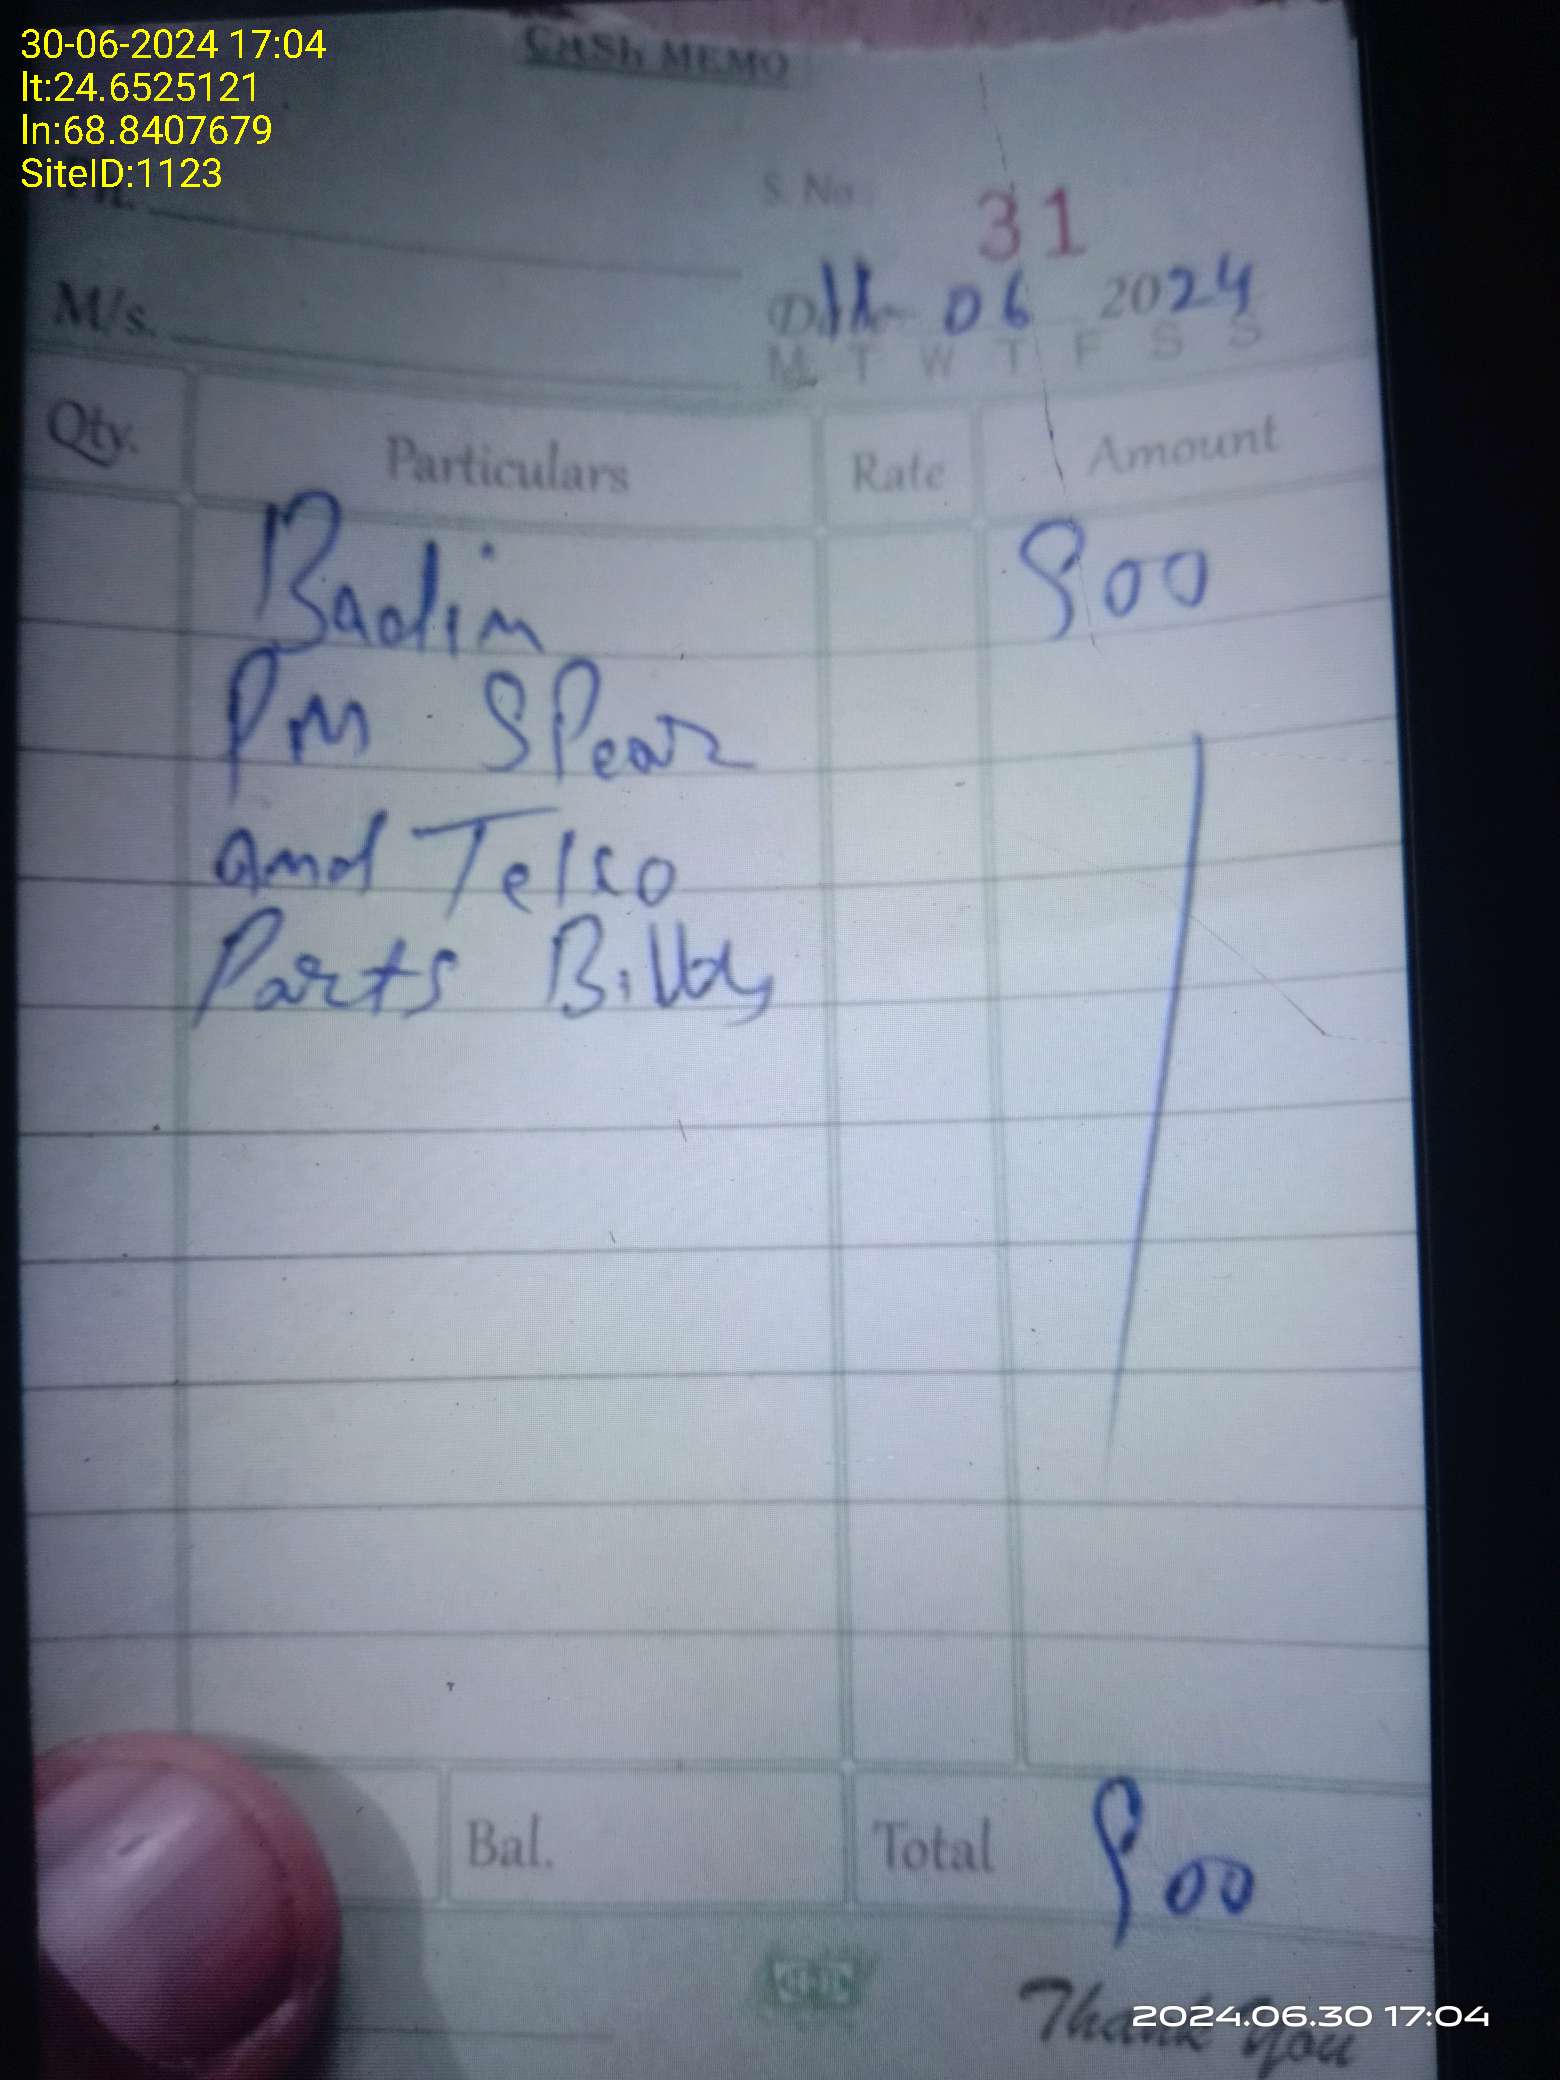 30-06-2024 17:04
lt:24.6525121
ln:68.8407679
SiteID:1123
CASh MEMO
S. No. 31
M/s.
06 2024
M T W T F S S
Qty. Particulars Rate Amount
Badin 900
Pm SPear
and Telco
Parts
Bal. Total 900
Thank You
2024.06.30 17:04